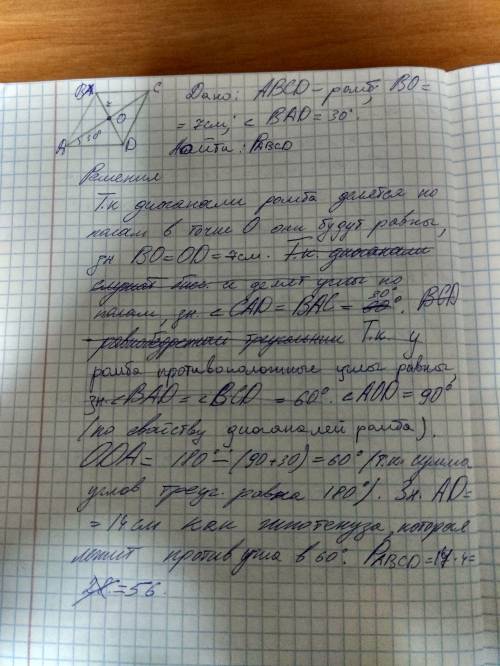 B C
A 30° O D
Дано: ABCD – ромб; BO=
= 7см; < BAD = 30°.
Найти: PABCD
Решение
Т.к диоганали ромба делятся по
полам в точке О они будут равны,
зн. BO = OD = 7см. Т.к. диоганали
и делят углы по
полам, зн. < CAD = BAC = 30°. BCD
равнобедренный треугольник Т.к. у
ромба противоположные углы равны,
зн < BAD = < BCD = 60°. < AOD = 90°
(по свойству диоганалей ромба).
ODA = 180° – (90+30) = 60° (т.к. сумма
углов треуг. равна 180°). Зн. AD=
= 14см как гипотенуза, которая
лежит против угла в 60°. PABCD = 14·4=
= 56.